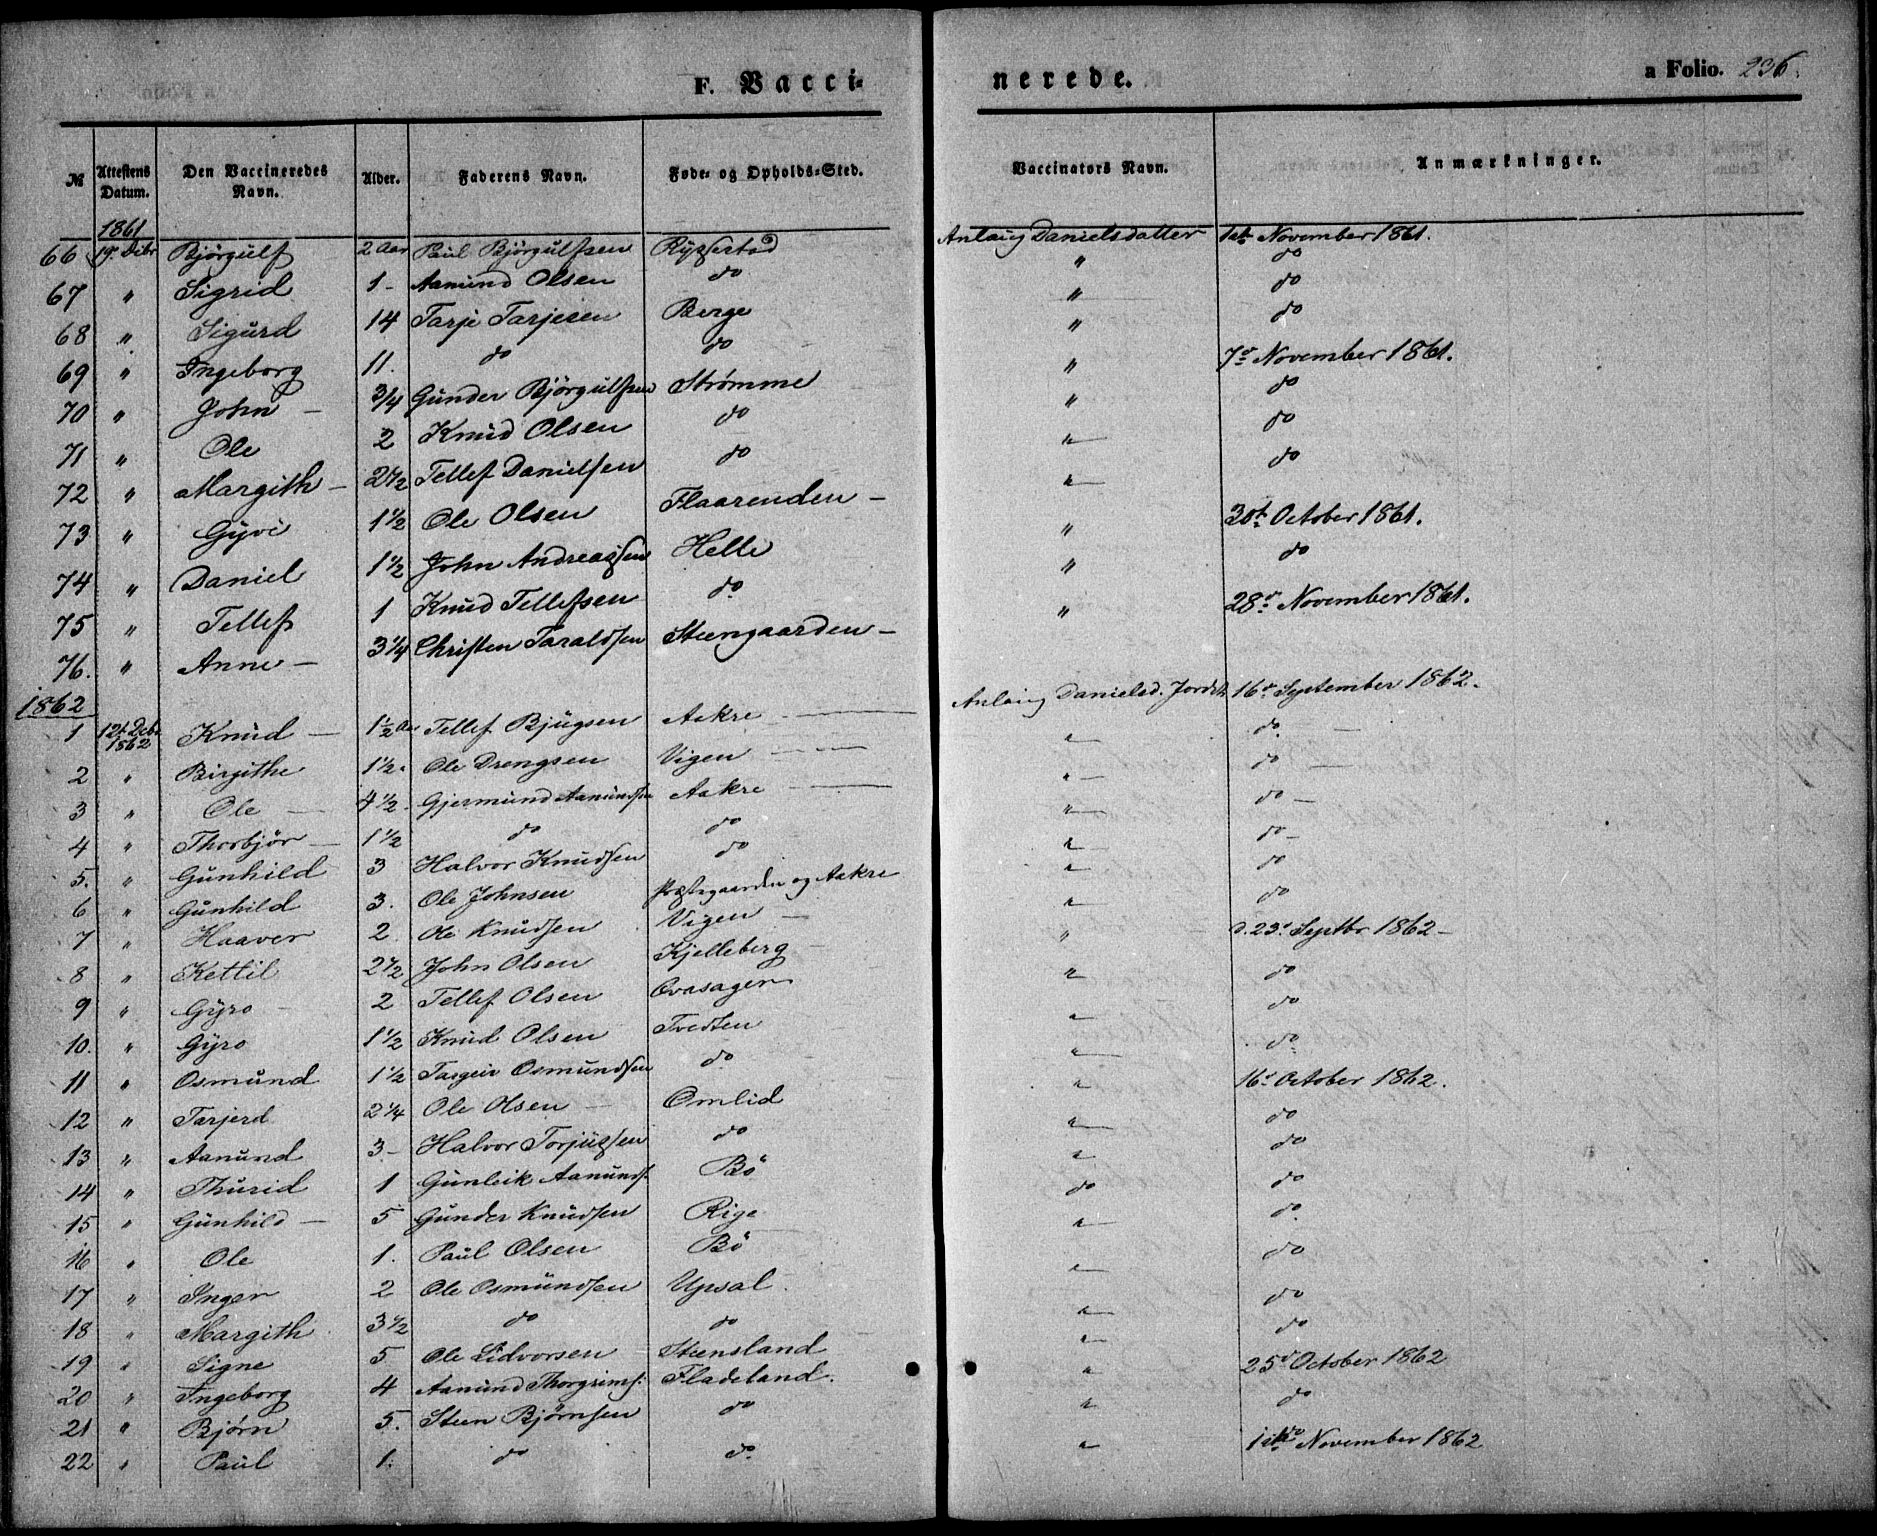 F. Vacci-
nerede.
a Folio. 236.
№ Attestens Datum. Den Vaccineredes Navn. Alder. Faderens Navn. Føde- og Opholds-Sted. Vaccinators Navn. Anmærkninger.
1861
66 19. Debr Bjørgulf 2 Aar Paul Bjørgulfsen Rygestad Anlaug Danielsdatter 1ste November 1861.
67 " Sigrid 1 - Aamund Olsen do " do
68 " Sigurd 14 Tarje Tarjesen Berge " do
69 " Ingeborg 11. do do " do
70 " John - 3/4 Gunder Bjørgulfsen Strømme " 7de November 1861.
71 " Ole 2 Knud Olsen do " do
72 " Margith - 2 1/2 Tellef Danielsen do " do
73 " Gyvi 1 1/2 Ole Olsen Flaarenden - " do
74 " Daniel 1 1/2 John Andreassen Helle " 30te October 1861.
75 " Tellef 1 Knud Tellefsen do " do
76. " Anne - 3 1/4 Christen Taraldsen Steengaarden - " 28de November 1861.
1862
1 12te Debr 1862 Knud - 1 1/2 Aar Tellef Bjugsen Aakre - Anlaug Danielsd. 16de September 1862.
2 " Birgithe 1 1/2. Ole Drengsen Vigen - " do
3 " Ole - 4 1/2. Gjermund Aamundsen Aakre - " do
4 " Thorbjør - 1 1/2 do do " do -
5. " Gunhild 3 Halvor Knudsen do " do -
6 " Gunhild 3. Ole Johnsen Præstegaarden og Aakre " do
7 " Haaver 2. Ole Knudsen Vigen - " do
8 " Kettil 2 1/2 John Olsen Kjelleberg " d. 23d Septbr 1862 -
9 " Gyro - 2 Tellef Olsen " do
10. " Gyro 1 1/2 Knud Olsen Tvedten " do
11 " Osmund 1 1/2 Targeir Osmundsen do " do
12 " Tarjerd 2 1/4 Ole Olsen - Omlid " 16d October 1862.
13 " Aanund 3 - Halvor Torjussen do " do
14 " Thurid 1 Gunleik Aanunds. Bö do do
15 " Gunhild - 5 Gunder Knudsen Rige " do
16 " Ole 1. Paul Olsen Bö " do.
17 " Inger 2 Ole Osmundsen Upsal. " do
18 " Margith 3 1/2 do do " do
19 " Signe 5 Ole Lidvorsen Steensland " do
20 " Ingeborg 4 Aanund Thorgrims: Fladeland. " 25d October 1862
21 " Bjørn 5. Steen Bjørnsen do " do
22 " Paul 1. do do. " November 1862